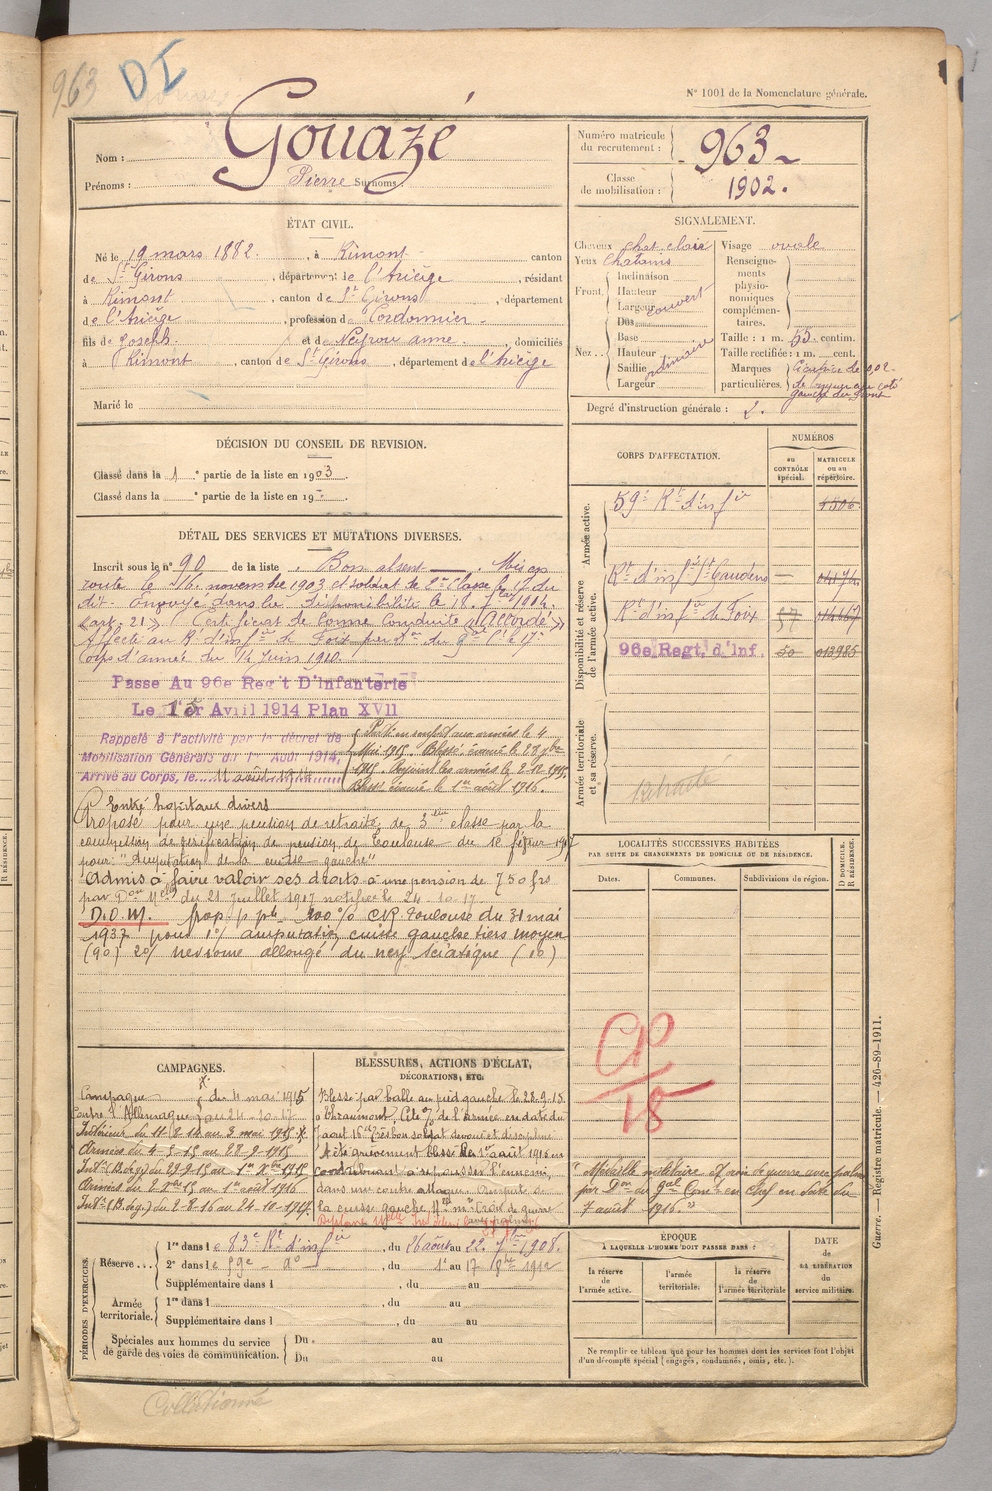 963 DI
N° 1001 de la Nomenclature générale.
Nom : Gouazé
Prénoms : Pierre Surnoms :
Numéro matricule du recrutement : 963
Classe de mobilisation : 1902.
ÉTAT CIVIL.
Né le 19 mars 1882. , à Rimont canton
de St Girons , département de l'Ariège , résidant
à Rimont , canton de St Girons , département
de l'Ariège , profession de Cordonnier
fils de Joseph. et de Neyrou anne. , domiciliés
à Rimont , canton de St Girons , département de l'Ariège
Marié le
SIGNALEMENT.
Cheveux chat clair
Yeux Chatains
Front Inclinaison
Hauteur
Largeur couvert
Nez Dos
Base
Hauteur
Saillie ordinaire
Largeur
Visage ovale
Renseignements physionomiques complémentaires.
Taille : 1 m. 55 centim.
Taille rectifiée : 1 m. cent.
Marques particulières. Cicatrice de 0,02.
de au coté
gauche du front
Degré d'instruction générale : 2.
DÉCISION DU CONSEIL DE REVISION.
Classé dans la 1 e partie de la liste en 1903.
Classé dans la e partie de la liste en 19
DÉTAIL DES SERVICES ET MUTATIONS DIVERSES.
Inscrit sous le n° 90 de la liste . Bon absent . Mis en
route le 16 novembre 1903 et soldat de 2e Classe le 17 du
dit. Envoyé dans la disponibilité le 18. 7bre 1904.
(art. 21) Certificat de bonne Conduite « Accordé »
Affecté au Rt d'Infie de Foix par on du Gal Ct le 17e
Corps d'armée du 14 Juin 1910.
Passe Au 96e Regt D'Infanterie
Le 1er Avril 1914 Plan XVII
Rappelé à l'activité par le décret de
Mobilisation Générale du 1er Août 1914,
Arrivé au Corps, le 11 août 1914
Parti en renfort aux armées le 4
Mai 1915. Blessé évacué le 28 7bre
1915. Rejoint les armées le 2-12-1915.
Blessé évacué le 1er août 1916.
Entré hopitaux divers
Proposé pour une pension de retraite de 3eme classe par la
commission de vérification de pension de Toulouse du 12 février 1917
pour: "Amputation de la cuisse gauche"
Admis à faire valoir ses droits à une pension de 750 frs
par Don Melle du 21 juillet 1917 notifiée le 24-10-17.
D.O.M. prop. p. pte 100% CR Toulouse du 31 mai
1937 pour 1°/ amputation cuisse gauche tiers moyen
(90) 2°/ nevrome allongé du nerf sciatique (10)
CORPS D'AFFECTATION.
NUMÉROS
au CONTRÔLE spécial.
MATRICULE ou au répertoire.
Armée active.
59e Rt d'infie 4506
Disponibilité et réserve de l'armée active.
Rt d'infie St Gaudens
Rt d'infie de Foix 57
96e Regt. d'Inf. 50 013985
Armée territoriale et sa réserve.
Retraité
LOCALITÉS SUCCESSIVES HABITÉES
PAR SUITE DE CHANGEMENTS DE DOMICILE OU DE RÉSIDENCE.
Dates. Communes. Subdivisions de région. D DOMICILE. R RÉSIDENCE.
CP
18
CAMPAGNES.
Campagne du 4 mai 1915
contre l'Allemagne au 24-10-17
Intérieur du 11-8-14 au 3 mai 1915
Armées du 4-5-15 au 28-9-1915
Intr (B. deg.) du 29-9-15 au 1er Xbre 1915
Armées du 2 Xbre 15 au 1er août 1916
Intr (B. deg.) du 2-8-16 au 24-10-1917.
BLESSURES, ACTIONS D'ÉCLAT,
DÉCORATIONS, ETC.
Blessé par balle au pied gauche le 28-9-15
à Thiaumont. Cité o/ de l'armée en date du
7 aout 16 "Très bon soldat devoué et discipliné
A été grièvement blessé le 1er août 1916 en
contribuant à repousser l'ennemi,
dans une contre attaque. Amputé de
la cuisse gauche. Croix de guerre
avec palme
"Médaille militaire. Croix de guerre avec palme
par Don du Gal Comt en Chef en date du
7 août 1916."
PÉRIODES D'EXERCICES.
Réserve ... 1re dans le 83e Rt d'infie , du 26 août au 22. 7bre 1908.
2e dans le 59e do , du 1er au 17 8bre 1912
Supplémentaire dans l , du au
Armée territoriale. 1re dans l , du au
Supplémentaire dans l , du au
Spéciales aux hommes du service de garde des voies de communication. Du au
Du au
ÉPOQUE
À LAQUELLE L'HOMME DOIT PASSER DANS :
la réserve de l'armée active.
l'armée territoriale.
la réserve de l'armée territoriale
DATE de LA LIBÉRATION du service militaire.
Ne remplir ce tableau que pour les hommes dont les services font l'objet
d'un décompte spécial (engagés, condamnés, omis, etc.).
Guerre. — Registre matricule. — 426-89-1911.
Collationné